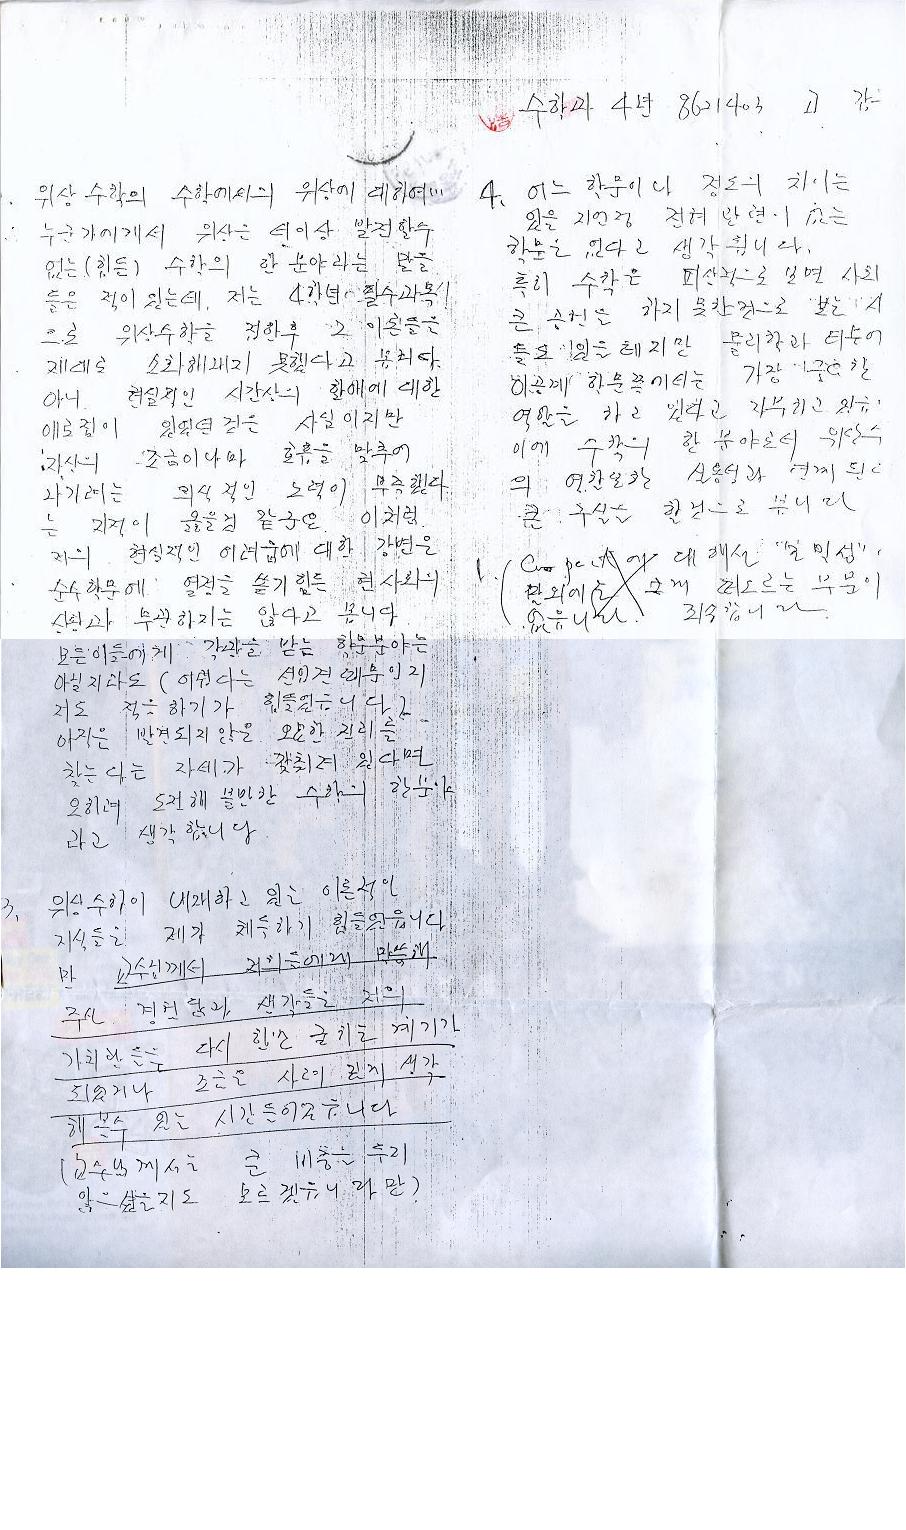 수학과 4년 8621403 고
위상수학의 수학에서의 위상에 대하여
누군가에게서 위상은 더이상 발전할수
없는(힘든) 수학의 한 분야라는 말을
들은 적이 있는데, 저는 4학년 필수과목
으로 위상수학을 접한후 그 이론들은
제대로 소화해내지 못했다고 봅니다.
아니 현실적인 시간상의 할애에 대한
애로점이 있었던 것은 사실이지만
조금이나마 호흡을 맞추어
나가려는 의식적인 노력이 부족했다
는 지적이 옳을것 같군요. 이처럼
저의 현실적인 어려움에 대한 강변은
순수학문에 열정을 쏟기 힘든 현사회의
무관하지는 않다고 봅니다
모든이들에게 각광을 받는 학문분야는
아닐지라도 (어렵다는 선입견 때문인지
저도 적응하기가 힘들었읍니다.)
아직은 발견되지 않은 오묘한 진리를
찾는다는 자세가 갖춰져 있다면
오히려 도전해 볼만한 수학의 한분야
라고 생각합니다.
3. 위상수학이 내재하고 있는 이론적인
지식들은 제가 체득하기 힘들었읍니다
만 교수님께서 저희들에게 말씀해
주신 경험담과 생각들은 저의
가치관 등을 다시 한번 굳히는 계기가
되었거나 조금은 사려 깊게 생각
해 볼수 있는 시간들이었읍니다
(교수님께서는 큰 비중을 두지
않으셨을지도 모르겠읍니다만)
4. 어느 학문이나 정도의 차이는
있을지언정 전혀 발현이 없는
학문은 없다고 생각됩니다.
특히 수학은 피상적으로 보면 사회
큰 공헌은 하지 못한것으로 보는
들도 있을테지만 물리학과 더불어
이공계 학문쪽에서는 가장
역할을 하고 있다고 자부하고
이에 수학의 한 분야로서 위상수
의 역할또한 실용성과 연계
큰 구실을 할것으로 봅니다
1. (Compact에 대해선 "
말외에는 떠오르는 부분이
없읍니다. 죄송합니다.